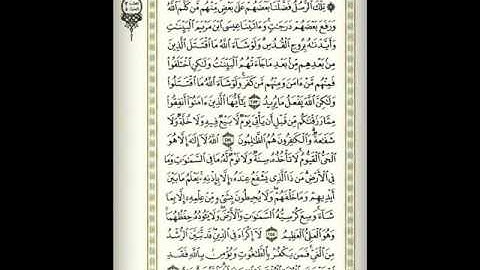 ۞ تِلْكَ ٱلرُّسُلُ فَضَّلْنَا بَعْضَهُمْ عَلَىٰ بَعْضٍ مِّنْهُم مَّن كَلَّمَ ٱللَّهُ
وَرَفَعَ بَعْضَهُمْ دَرَجَٰتٍ وَءَاتَيْنَا عِيسَى ٱبْنَ مَرْيَمَ ٱلْبَيِّنَٰتِ
وَأَيَّدْنَٰهُ بِرُوحِ ٱلْقُدُسِ وَلَوْ شَآءَ ٱللَّهُ مَا ٱقْتَتَلَ ٱلَّذِينَ
مِنۢ بَعْدِهِم مِّنۢ بَعْدِ مَا جَآءَتْهُمُ ٱلْبَيِّنَٰتُ وَلَٰكِنِ ٱخْتَلَفُوا۟
فَمِنْهُم مَّنْ ءَامَنَ وَمِنْهُم مَّن كَفَرَ وَلَوْ شَآءَ ٱللَّهُ مَا ٱقْتَتَلُوا۟
وَلَٰكِنَّ ٱللَّهَ يَفْعَلُ مَا يُرِيدُ ٢٥٣ يَٰٓأَيُّهَا ٱلَّذِينَ ءَامَنُوٓا۟ أَنفِقُوا۟
مِمَّا رَزَقْنَٰكُم مِّن قَبْلِ أَن يَأْتِىَ يَوْمٌ لَّا بَيْعٌ فِيهِ وَلَا خُلَّةٌ وَلَا
شَفَٰعَةٌ وَٱلْكَٰفِرُونَ هُمُ ٱلظَّٰلِمُونَ ٢٥٤ ٱللَّهُ لَآ إِلَٰهَ إِلَّا هُوَ
ٱلْحَىُّ ٱلْقَيُّومُ لَا تَأْخُذُهُۥ سِنَةٌ وَلَا نَوْمٌ لَّهُۥ مَا فِى ٱلسَّمَٰوَٰتِ وَمَا
فِى ٱلْأَرْضِ مَن ذَا ٱلَّذِى يَشْفَعُ عِندَهُۥٓ إِلَّا بِإِذْنِهِۦ يَعْلَمُ مَا بَيْنَ
أَيْدِيهِمْ وَمَا خَلْفَهُمْ وَلَا يُحِيطُونَ بِشَىْءٍ مِّنْ عِلْمِهِۦٓ إِلَّا بِمَا
شَآءَ وَسِعَ كُرْسِيُّهُ ٱلسَّمَٰوَٰتِ وَٱلْأَرْضَ وَلَا يَـُٔودُهُۥ حِفْظُهُمَا
وَهُوَ ٱلْعَلِىُّ ٱلْعَظِيمُ ٢٥٥ لَآ إِكْرَاهَ فِى ٱلدِّينِ قَد تَّبَيَّنَ ٱلرُّشْدُ
مِنَ ٱلْغَىِّ فَمَن يَكْفُرْ بِٱلطَّٰغُوتِ وَيُؤْمِنۢ بِٱللَّهِ فَقَدِ